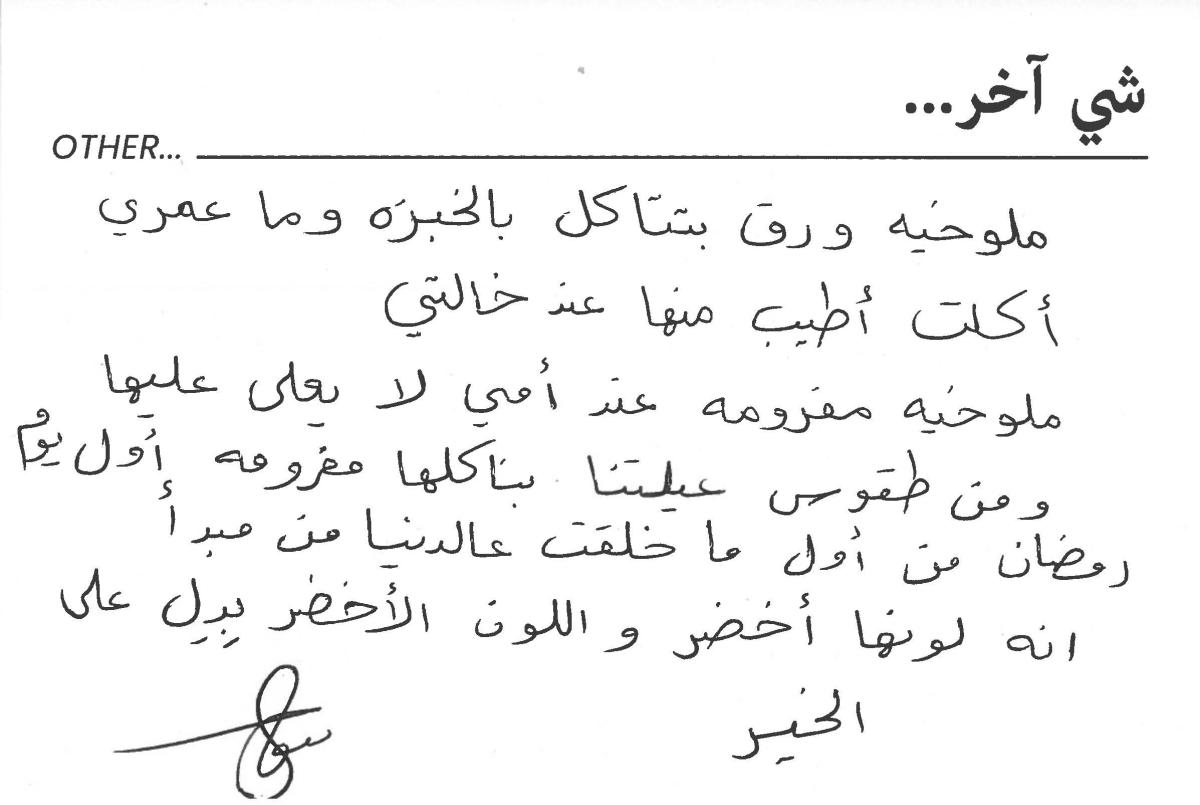 شي آخر...
OTHER...
ملوخيه ورق بتتاكل بالخبزه وما عمري
أكلت أطيب منها عند خالتي
ملوخيه مفرومه عند أمي لا يعلى عليها
ومن طقوس عيلتنا بناكلها مفرومه أول يوم
رمضان من أول ما خلقت عالدنيا من مبدأ
انه لونها أخضر و اللون الأخضر بِدِل على
الخير